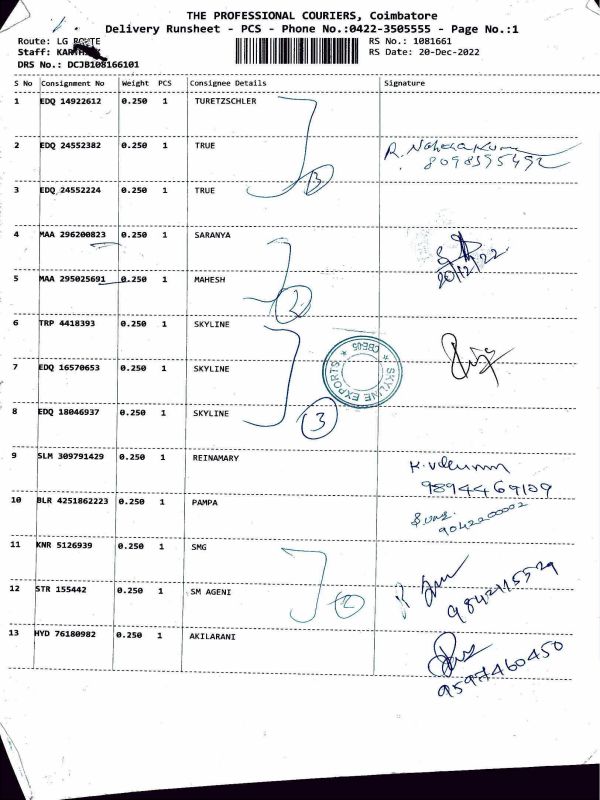 THE PROFESSIONAL COURIERS, Coimbatore
Delivery Runsheet - PCS - Phone No.:0422-3505555 - Page No.:1
Route: LG ROUTE RS No.: 1081661
Staff: RS Date: 20-Dec-2022
DRS No.: DCJB108166101
S No Consignment No Weight PCS Consignee Details Signature
1 EDQ 14922612 0.250 1 TURETZSCHLER
2 EDQ 24552382 0.250 1 TRUE
R.
8098395492
3 EDQ 24552224 0.250 1 TRUE
3
4 MAA 296200823 0.250 1 SARANYA
20/12/22
5 MAA 295025691 0.250 1 MAHESH
2
6 TRP 4418393 0.250 1 SKYLINE
7 EDQ 16570653 0.250 1 SKYLINE
SKYLINE EXPORTS * CBE05 *
8 EDQ 18046937 0.250 1 SKYLINE
3
9 SLM 309791429 0.250 1 REINAMARY
9894469109
10 BLR 4251862223 0.250 1 PAMPA
9042200002
11 KNR 5126939 0.250 1 SMG
12 STR 155442 0.250 1 SM AGENI
2
9842115529
13 HYD 76180982 0.250 1 AKILARANI
9597460450